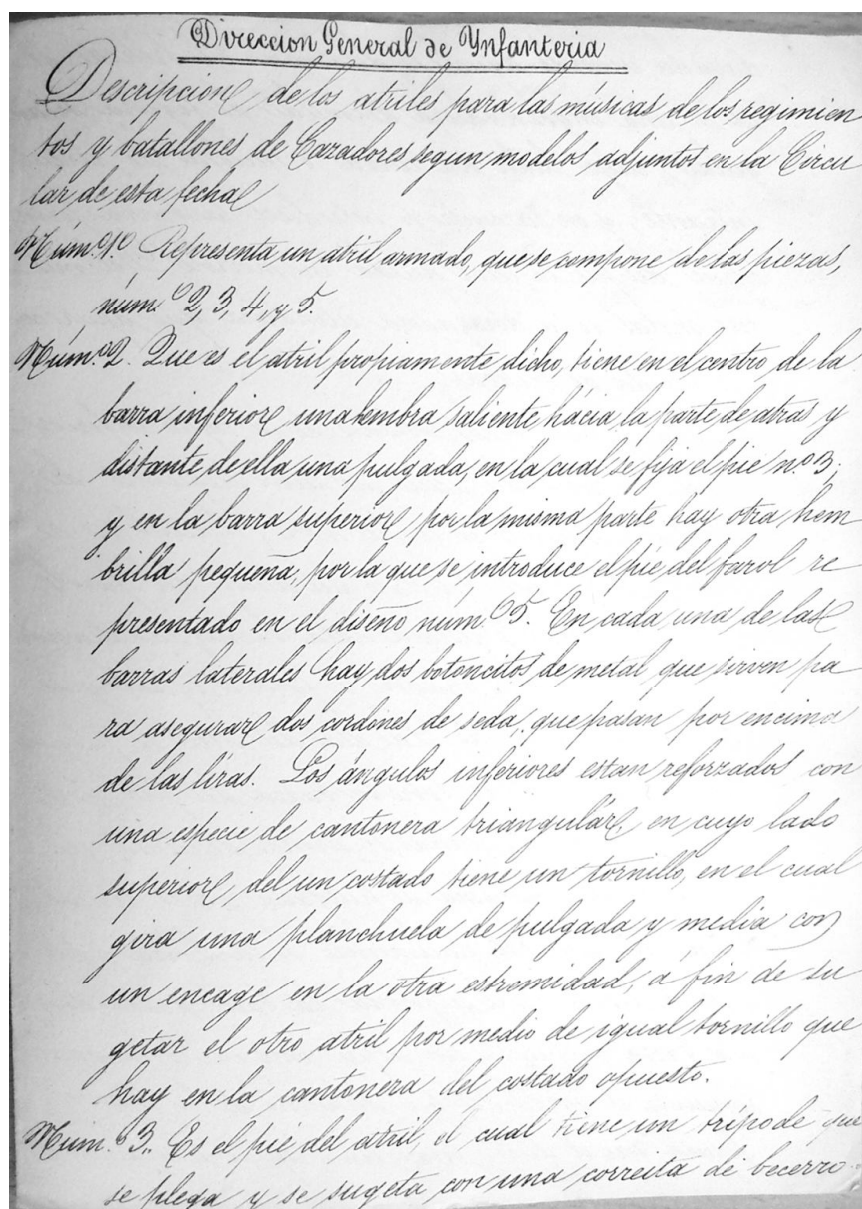 Direccion General de Ynfanteria
Descripcion de los atriles para las músicas de los regimien
tos y batallones de Cazadores segun modelos adjuntos en la Circu
lar de esta fecha
Núm.º 1.º Representa un atril armado, que se compone de las piezas,
núm.º 2, 3, 4, y 5.
Núm.º 2. Que es el atril propiamente dicho, tiene en el centro de la
barra inferior una hembra saliente hácia la parte de atras y
distante de ella una pulgada, en la cual se fija el pie n.º 3;
y en la barra superior por la misma parte hay otra hem
brilla pequeña, por la que se introduce el pié del farol re
presentado en el diseño núm.º 5. En cada una de las
barras laterales hay dos botoncitos de metal que sirven pa
ra asegurar dos cordones de seda, que pasan por encima
de las liras. Los ángulos inferiores estan reforzados con
una especie de cantonera triangulár, en cuyo lado
superior, del un costado tiene un tornillo, en el cual
gira una planchuela de pulgada y media con
un encage en la otra estremidad, á fin de su
getar el otro atril por medio de igual tornillo que
hay en la cantonera del costado opuesto.
Núm.º 3.. Es el pié del atril, el cual tiene un trípode que
se plega y se sugeta con una correita de becerro.